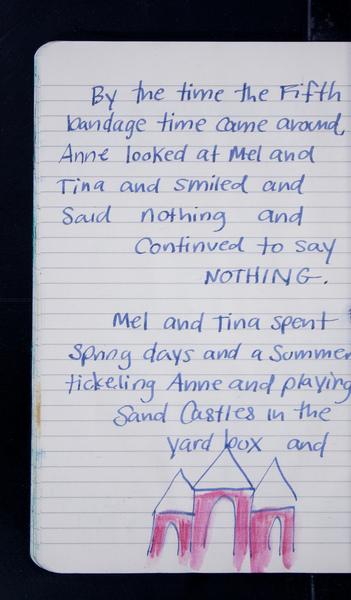 By the time the Fifth
bandage time came around,
Anne looked at Mel and
Tina and smiled and
Said nothing and
Continued to say
NOTHING.
Mel and Tina spent
Spring days and a Summer
tickeling Anne and playing
Sand Castles in the
yard box and